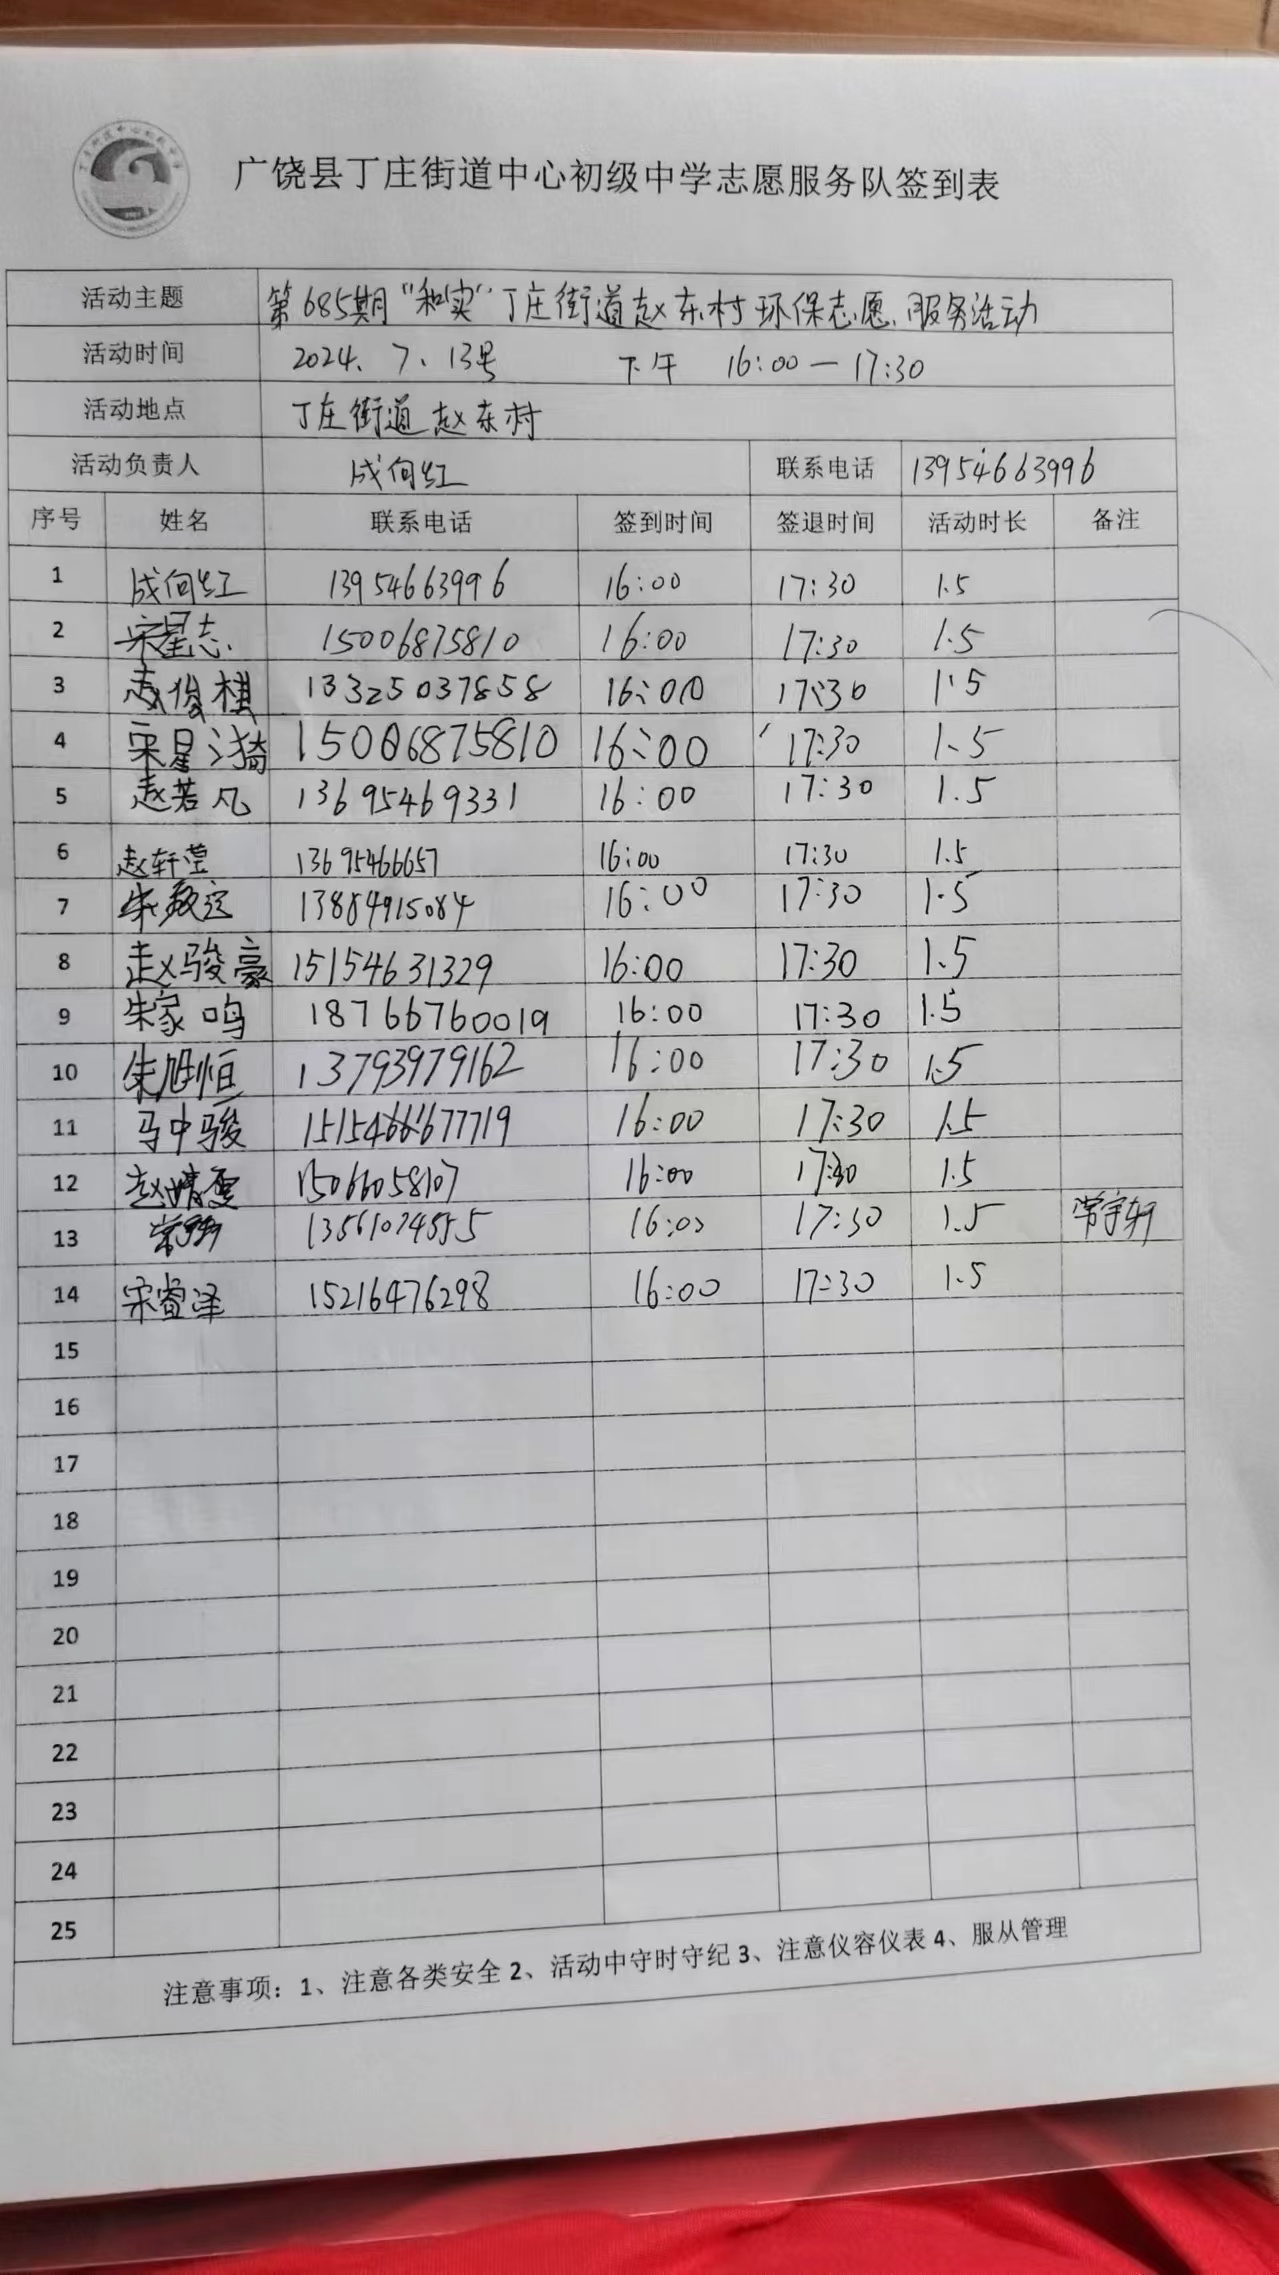 广饶县丁庄街道中心初级中学志愿服务队签到表
活动主题 第685期“和实”丁庄街道赵东村环保志愿服务活动
活动时间 2024.7.13号 下午 16:00—17:30
活动地点 丁庄街道赵东村
活动负责人 成向红 联系电话 13954663996
序号 姓名 联系电话 签到时间 签退时间 活动时长 备注
1 成向红 13954663996 16:00 17:30 1.5
2 宋星志 15006875810 16:00 17:30 1.5
3 赵俊棋 13325037858 16:00 17:30 1.5
4 宋星漪 15006875810 16:00 17:30 1.5
5 赵若凡 13695469331 16:00 17:30 1.5
6 赵轩莹 13695466657 16:00 17:30 1.5
7 13884915084 16:00 17:30 1.5
8 赵骏豪 15154631329 16:00 17:30 1.5
9 朱家鸣 18766760019 16:00 17:30 1.5
10 朱旭恒 13793979162 16:00 17:30 1.5
11 马中骏 16:00 17:30 1.5
12 赵晴雯 15066058107 16:00 17:30 1.5
13 16:00 17:30 1.5 常宇轩
14 宋睿泽 15216476298 16:00 17:30 1.5
15
16
17
18
19
20
21
22
23
24
25
注意事项：1、注意各类安全 2、活动中守时守纪 3、注意仪容仪表 4、服从管理